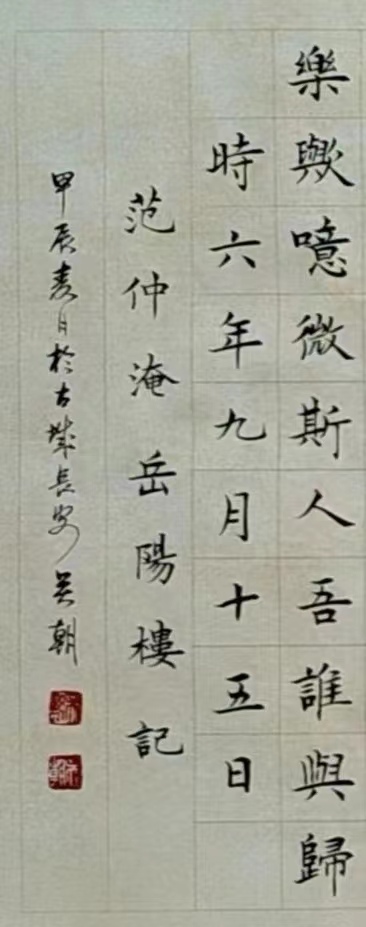 樂歟噫微斯人吾誰與歸
時六年九月十五日
范仲淹岳陽樓記
甲辰夏日於古城長安吴朝